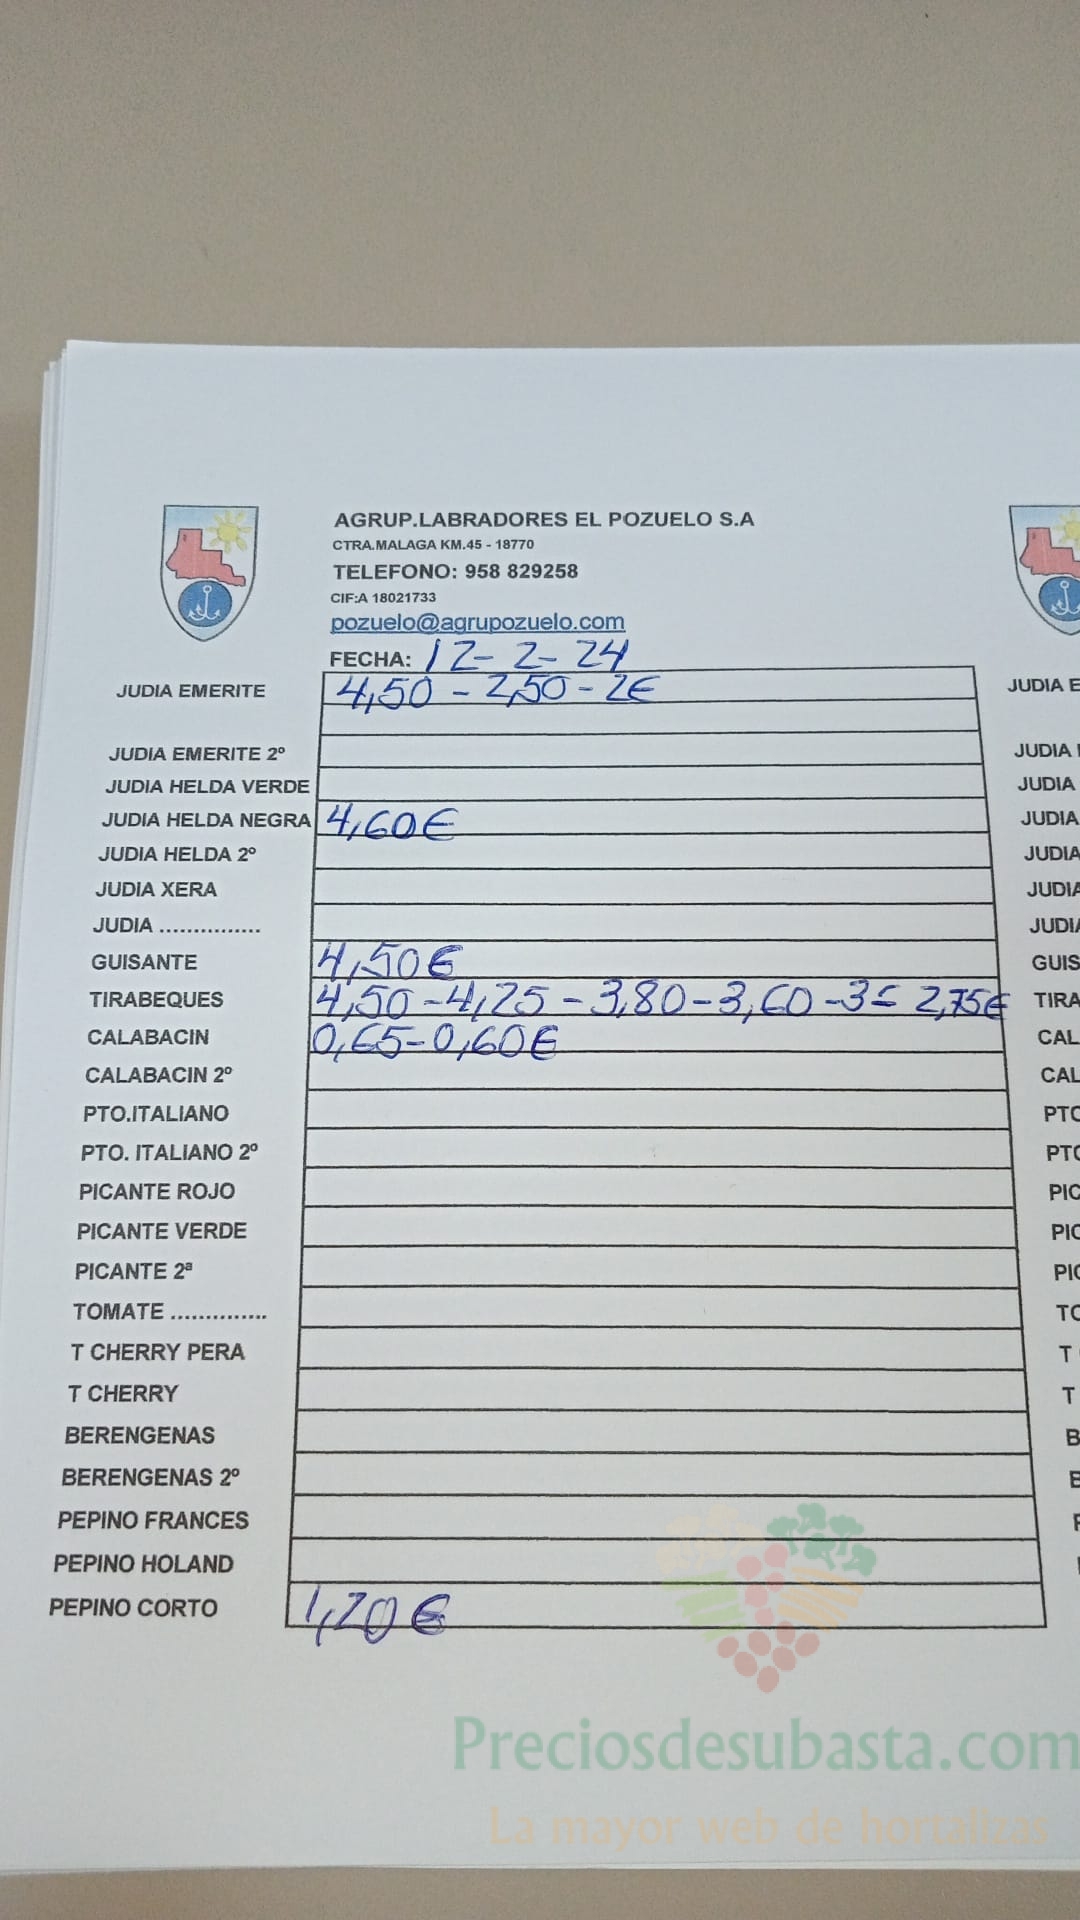 AGRUP.LABRADORES EL POZUELO S.A
CTRA.MALAGA KM.45 - 18770
TELEFONO: 958 829258
CIF:A 18021733
pozuelo@agrupozuelo.com
FECHA: 12-2-24
JUDIA EMERITE 4,50-2,50-2€ JUDIA E
JUDIA EMERITE 2º JUDIA
JUDIA HELDA VERDE JUDIA
JUDIA HELDA NEGRA 4,60€ JUDIA
JUDIA HELDA 2º JUDIA
JUDIA XERA JUDIA
JUDIA ............... JUDIA
GUISANTE 4,50€ GUIS
TIRABEQUES 4,50-4,25-3,80-3,60-3= 2,75€ TIRA
CALABACIN 0,65-0,60€ CAL
CALABACIN 2º CAL
PTO.ITALIANO PTO
PTO. ITALIANO 2º PTO
PICANTE ROJO PIC
PICANTE VERDE PIC
PICANTE 2ª PIC
TOMATE .............. TO
T CHERRY PERA T
T CHERRY T
BERENGENAS B
BERENGENAS 2º
PEPINO FRANCES
PEPINO HOLAND
PEPINO CORTO 1,20€
Preciosdesubasta.com
La mayor web de hortalizas